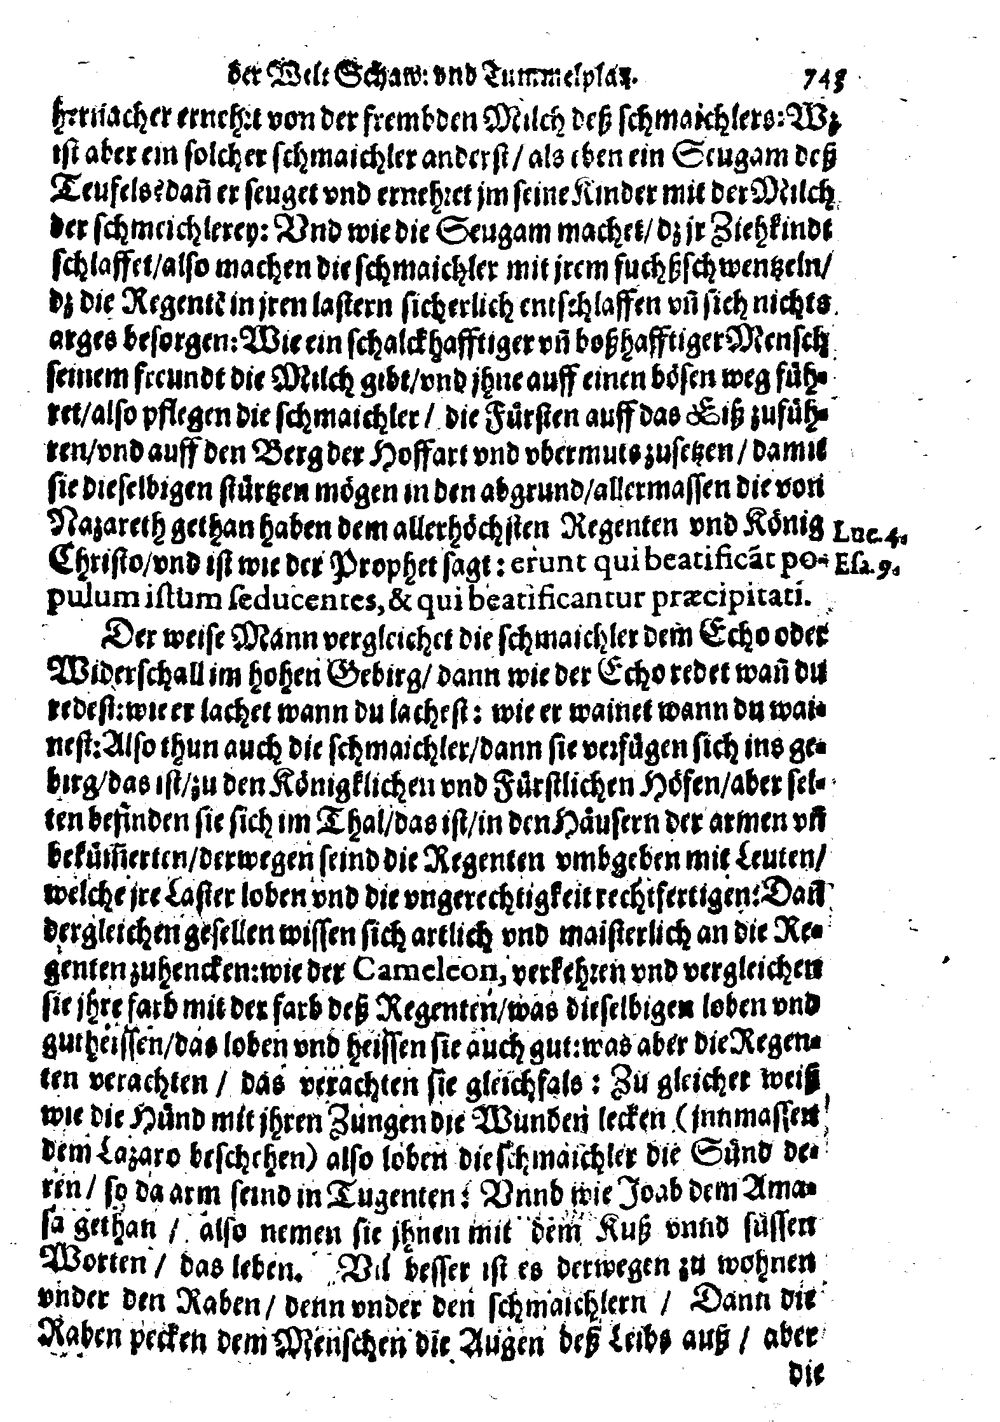 der Welt Schaw: vnd Tummelplatz. 743
hernacher ernehrt von der frembden Milch deß schmaichlers: Wz
ist aber ein solcher schmaichler anderst/ als eben ein Seugam deß
Teufels? dañ er seuget vnd ernehret jm seine Kinder mit der Milch
der schmeichlerey: Vnd wie die Seugam machet/ dz jr Ziehkindt
schlaffet/ also machen die schmaichler mit jrem fuchßschwentzeln/
dz die Regentē in jren lastern sicherlich entschlaffen vñ sich nichts
arges besorgen: Wie ein schalckhafftiger vñ boßhafftiger Mensch
seinem freundt die Milch gibt/ vnd jhne auff einen bösen weg füh-
ret/ also pflegen die schmaichler/ die Fürsten auff das Eiß zufüh-
ren/ vnd auff den Berg der Hoffart vnd vbermuts zusetzen/ damit
sie dieselbigen stürtzen mögen in den abgrund/ allermassen die von
Nazareth gethan haben dem allerhöchsten Regenten vnd König
Luc. 4.
Christo/ vnd ist wie der Prophet sagt: erunt qui beatificāt po-
Esa. 9.
pulum istum seducentes, & qui beatificantur præcipitati.
Der weise Mann vergleichet die schmaichler dem Echo oder
Widerschall im hohen Gebirg/ dann wie der Echo redet wañ du
redest: wie er lachet wann du lachest: wie er wainet wann du wai-
nest: Also thun auch die schmaichler/ dann sie verfügen sich ins ge-
birg/ das ist/ zu den Königklichen vnd Fürstlichen Höfen/ aber sel-
ten befinden sie sich im Thal/ das ist/ in den Häusern der armen vñ
bekümmerten/ derwegen seind die Regenten vmbgeben mit Leuten/
welche jre Laster loben vnd die vngerechtigkeit rechtfertigen: Dañ
dergleichen gesellen wissen sich artlich vnd maisterlich an die Re-
genten zuhencken: wie der Cameleon, verkehren vnd vergleichen
sie jhre farb mit der farb deß Regenten/ was dieselbigen loben vnd
gutheissen/ das loben vnd heissen sie auch gut: was aber die Regen-
ten verachten/ das verachten sie gleichfals: Zu gleicher weiß
wie die Hünd mit jhren Zungen die Wunden lecken (jnnmassen
dem Lazaro beschehen) also loben die schmaichler die Sünd de-
ren/ so da arm seind in Tugenten: Vnnd wie Joab dem Ama-
sa gethan/ also nemen sie jhnen mit dem Kuß vnnd süssen
Worten/ das leben. Vil besser ist es derwegen zu wohnen
vnder den Raben/ denn vnder den schmaichlern/ Dann die
Raben pecken dem Menschen die Augen deß Leibs auß/ aber
die